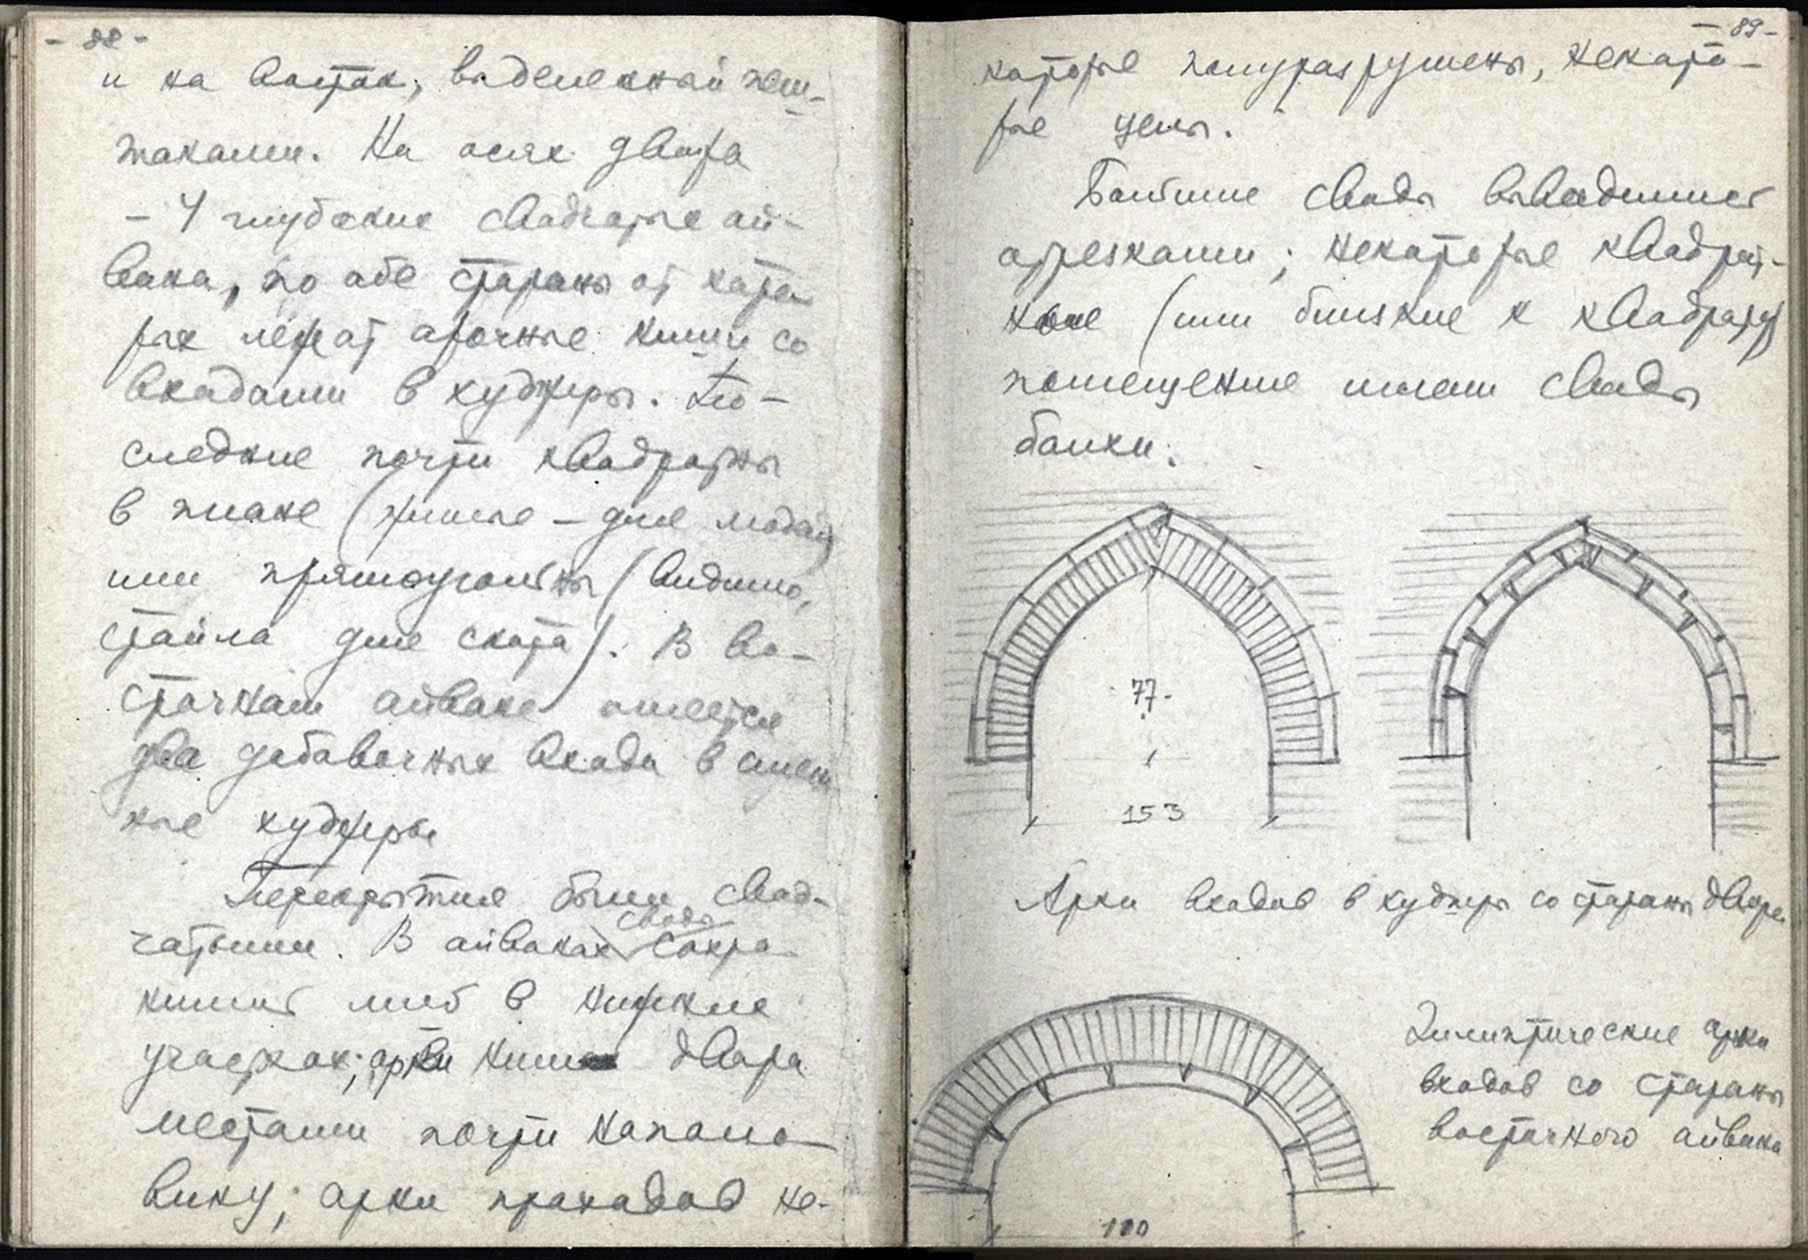 - 88 -
и на восток, выделенный пеш-
таками. На осях двора
- 4 глубокие сводчатые ай-
вана, по обе стороны от кото-
рых лежат арочные ниши со
входами в худжры. По-
следние почти квадратны
в плане (жилые - для людей)
или прямоугольны (видимо,
стойла для скота). В во-
сточном айване имеется
два добавочных входа в смеж
ные худжры
Перекрытия были свод-
чатыми. В айванах своды сохра-
нились лишь в нижних
участках; арки ниш двора
местами почти наполо-
вину; арки проходов не-
- 89 -
которые полуразрушены, некото-
рые целы.
Большие своды выводились
отрезками; некоторые квадрат-
ные (или близкие к квадрату)
помещения имели своды
балхи.
77
153
Арки входов в худжры со стороны двора
Эллиптические арки
входов со стороны
восточного айвана
110